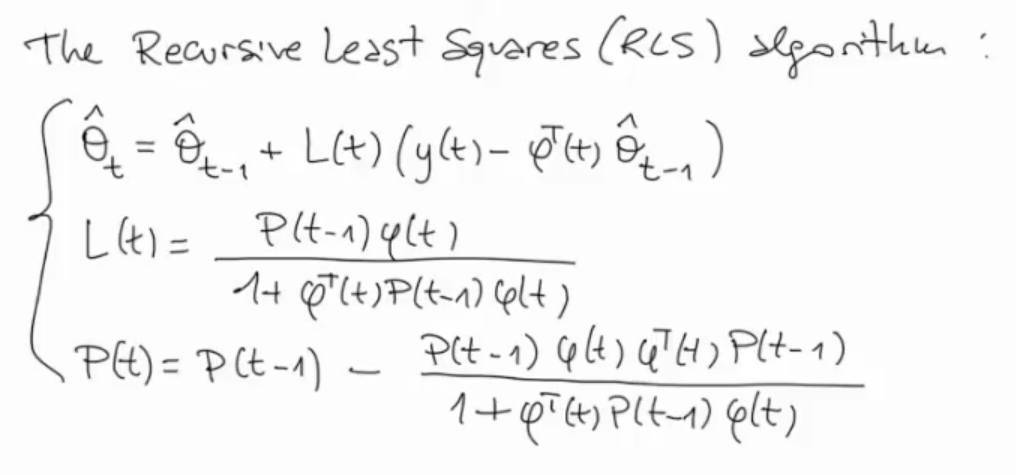 The Recursive Least Squares (RLS) algorithm :
θ̂_t = θ̂_{t-1} + L(t) (y(t) - φ^T(t) θ̂_{t-1})
L(t) = P(t-1) φ(t) / 1 + φ^T(t) P(t-1) φ(t)
P(t) = P(t-1) - P(t-1) φ(t) φ^T(t) P(t-1) / 1 + φ^T(t) P(t-1) φ(t)